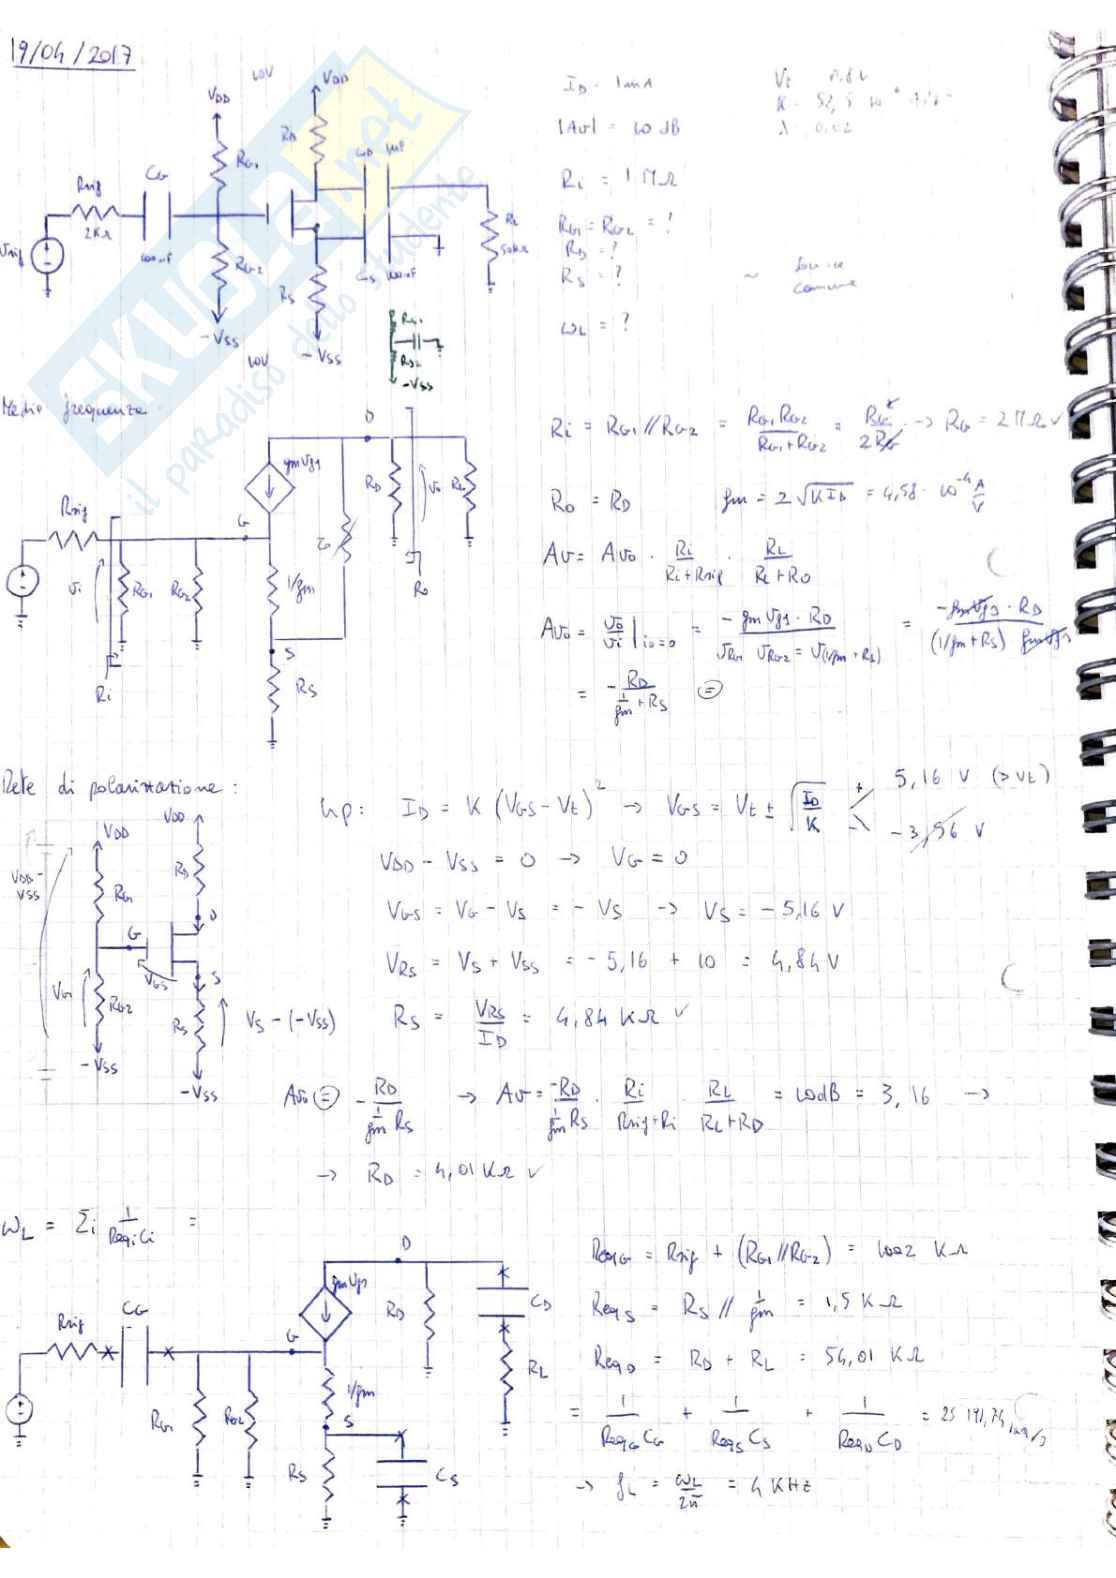 19/04/2017
10V
VDD
VDD
RD
RG1
CG
CD 1µF
Rsig
2KΩ
100nF
RL
50KΩ
Vsig
RG2
CS 100nF
RS
-VSS
10V
-VSS
RG1
RG2
-VSS
ID = 1mA
|Av| = 10 dB
Ri = 1 MΩ
RG1 = RG2 = ?
RD = ?
RS = ?
ωL = ?
Vt 0,8 V
K
λ 0,02
~ Source
comune
SKUOLA.net
il paradiso dello studente
Medie frequenze
D
gmVgs
RD
Vo
RL
Rsig
G
Vi
RG1
RG2
1/gm
ro
Ro
S
Ri
RS
Ri = RG1 // RG2 = RG1 RG2 / RG1+RG2 = RG² / 2RG → RG = 2 MΩ √
Ro = RD gm = 2 √(K ID) = 4,58 · 10⁻⁴ A/V
Av = Avo · Ri / Ri+Rsig · RL / RL+Ro
Avo = vo / vi | io=0 = - gm Vgs · RD / VRG1 VRG2 = V(1/gm + RS) = - gm Vgs · RD / (1/gm + RS) gm Vgs
= - RD / 1/gm + RS (=)
Rete di polarizzazione :
VDD
VDD
VDD-
VSS
RG1
RD
D
G
VGS
VG
RG2
S
RS
VS - (-VSS)
-VSS
-VSS
hp: ID = K (VGS - Vt)² → VGS = Vt ± √(ID / K) + 5,16 V (> Vt)
- -3,56 V
VDD - VSS = 0 → VG = 0
VGS = VG - VS = - VS → VS = - 5,16 V
VRS = VS + VSS = - 5,16 + 10 = 4,84 V
RS = VRS / ID = 4,84 KΩ √
Avo (=) - RD / 1/gm RS → Av = -RD / 1/gm RS · Ri / Rsig+Ri · RL / RL+RD = 10dB = 3,16 →
→ RD = 4,01 KΩ √
ωL = Σi 1 / Reqi Ci =
D
gmVgs
RD
CD
Rsig
CG
G
RL
RG1
RG2
1/gm
S
RS
CS
ReqG = Rsig + (RG1 // RG2) = 1002 KΩ
ReqS = RS // 1/gm = 1,5 KΩ
ReqD = RD + RL = 54,01 KΩ
= 1 / ReqG CG + 1 / ReqS CS + 1 / ReqD CD = 25 191,74 rad/s
→ fL = ωL / 2π = 4 KHz